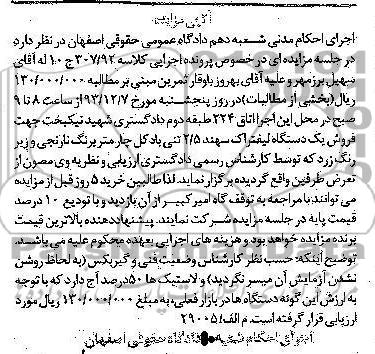 آگهی مزایده
اجرای احکام مدنی شعبه دهم دادگاه عمومی حقوقی اصفهان در نظر دارد
در جلسه مزایده ای در خصوص پرونده اجرایی کلاسه ۳۰۷/۹۲ ج ۱۰ له آقای
سهیل برزمهر و علیه آقای بهروز باوقار ثمرین مبنی بر مطالبه ۱۳۰/۰۰۰/۰۰۰
ریال (بخشی از مطالبات) در روز پنجشنبه مورخ ۹۳/۱۲/۷ از ساعت ۸ تا ۹
صبح در محل این اجرا اتاق ۲۲۴ طبقه دوم دادگستری شهید نیکبخت جهت
فروش یک دستگاه لیفتراک سهند ۲/۵ تنی بادکل چارمتر برنگ نارنجی و زیر
رنگ زرد که توسط کارشناس رسمی دادگستری ارزیابی و نظریه وی مصون از
تعرض طرفین واقع گردیده برگزار نماید. لذا طالبین خرید ۵ روز قبل از مزایده
می توانند با مراجعه به توقف گاه امیر کبیر از آن بازدید و با تودیع ۱۰ درصد
قیمت پایه در جلسه مزایده شرکت نمایند. پیشنهاددهنده بالاترین قیمت
برنده مزایده خواهد بود و هزینه های اجرایی بعهده محکوم علیه می باشد.
توضیح اینکه: حسب نظر کارشناس وضعیت فنی و گیربکس (به لحاظ روشن
نشدن آزمایش آن میسر نگردید) و لاستیک ها ۵۰درصد آج دارد که با توجه
به ارزش این گونه دستگاه ها در بازار فعلی، به مبلغ ۱۳۰/۰۰۰/۰۰۰ ریال مورد
ارزیابی قرار گرفته است. م الف/ ۲۹۰۰۵
اجرای احکام شعبه دادگاه حقوقی اصفهان